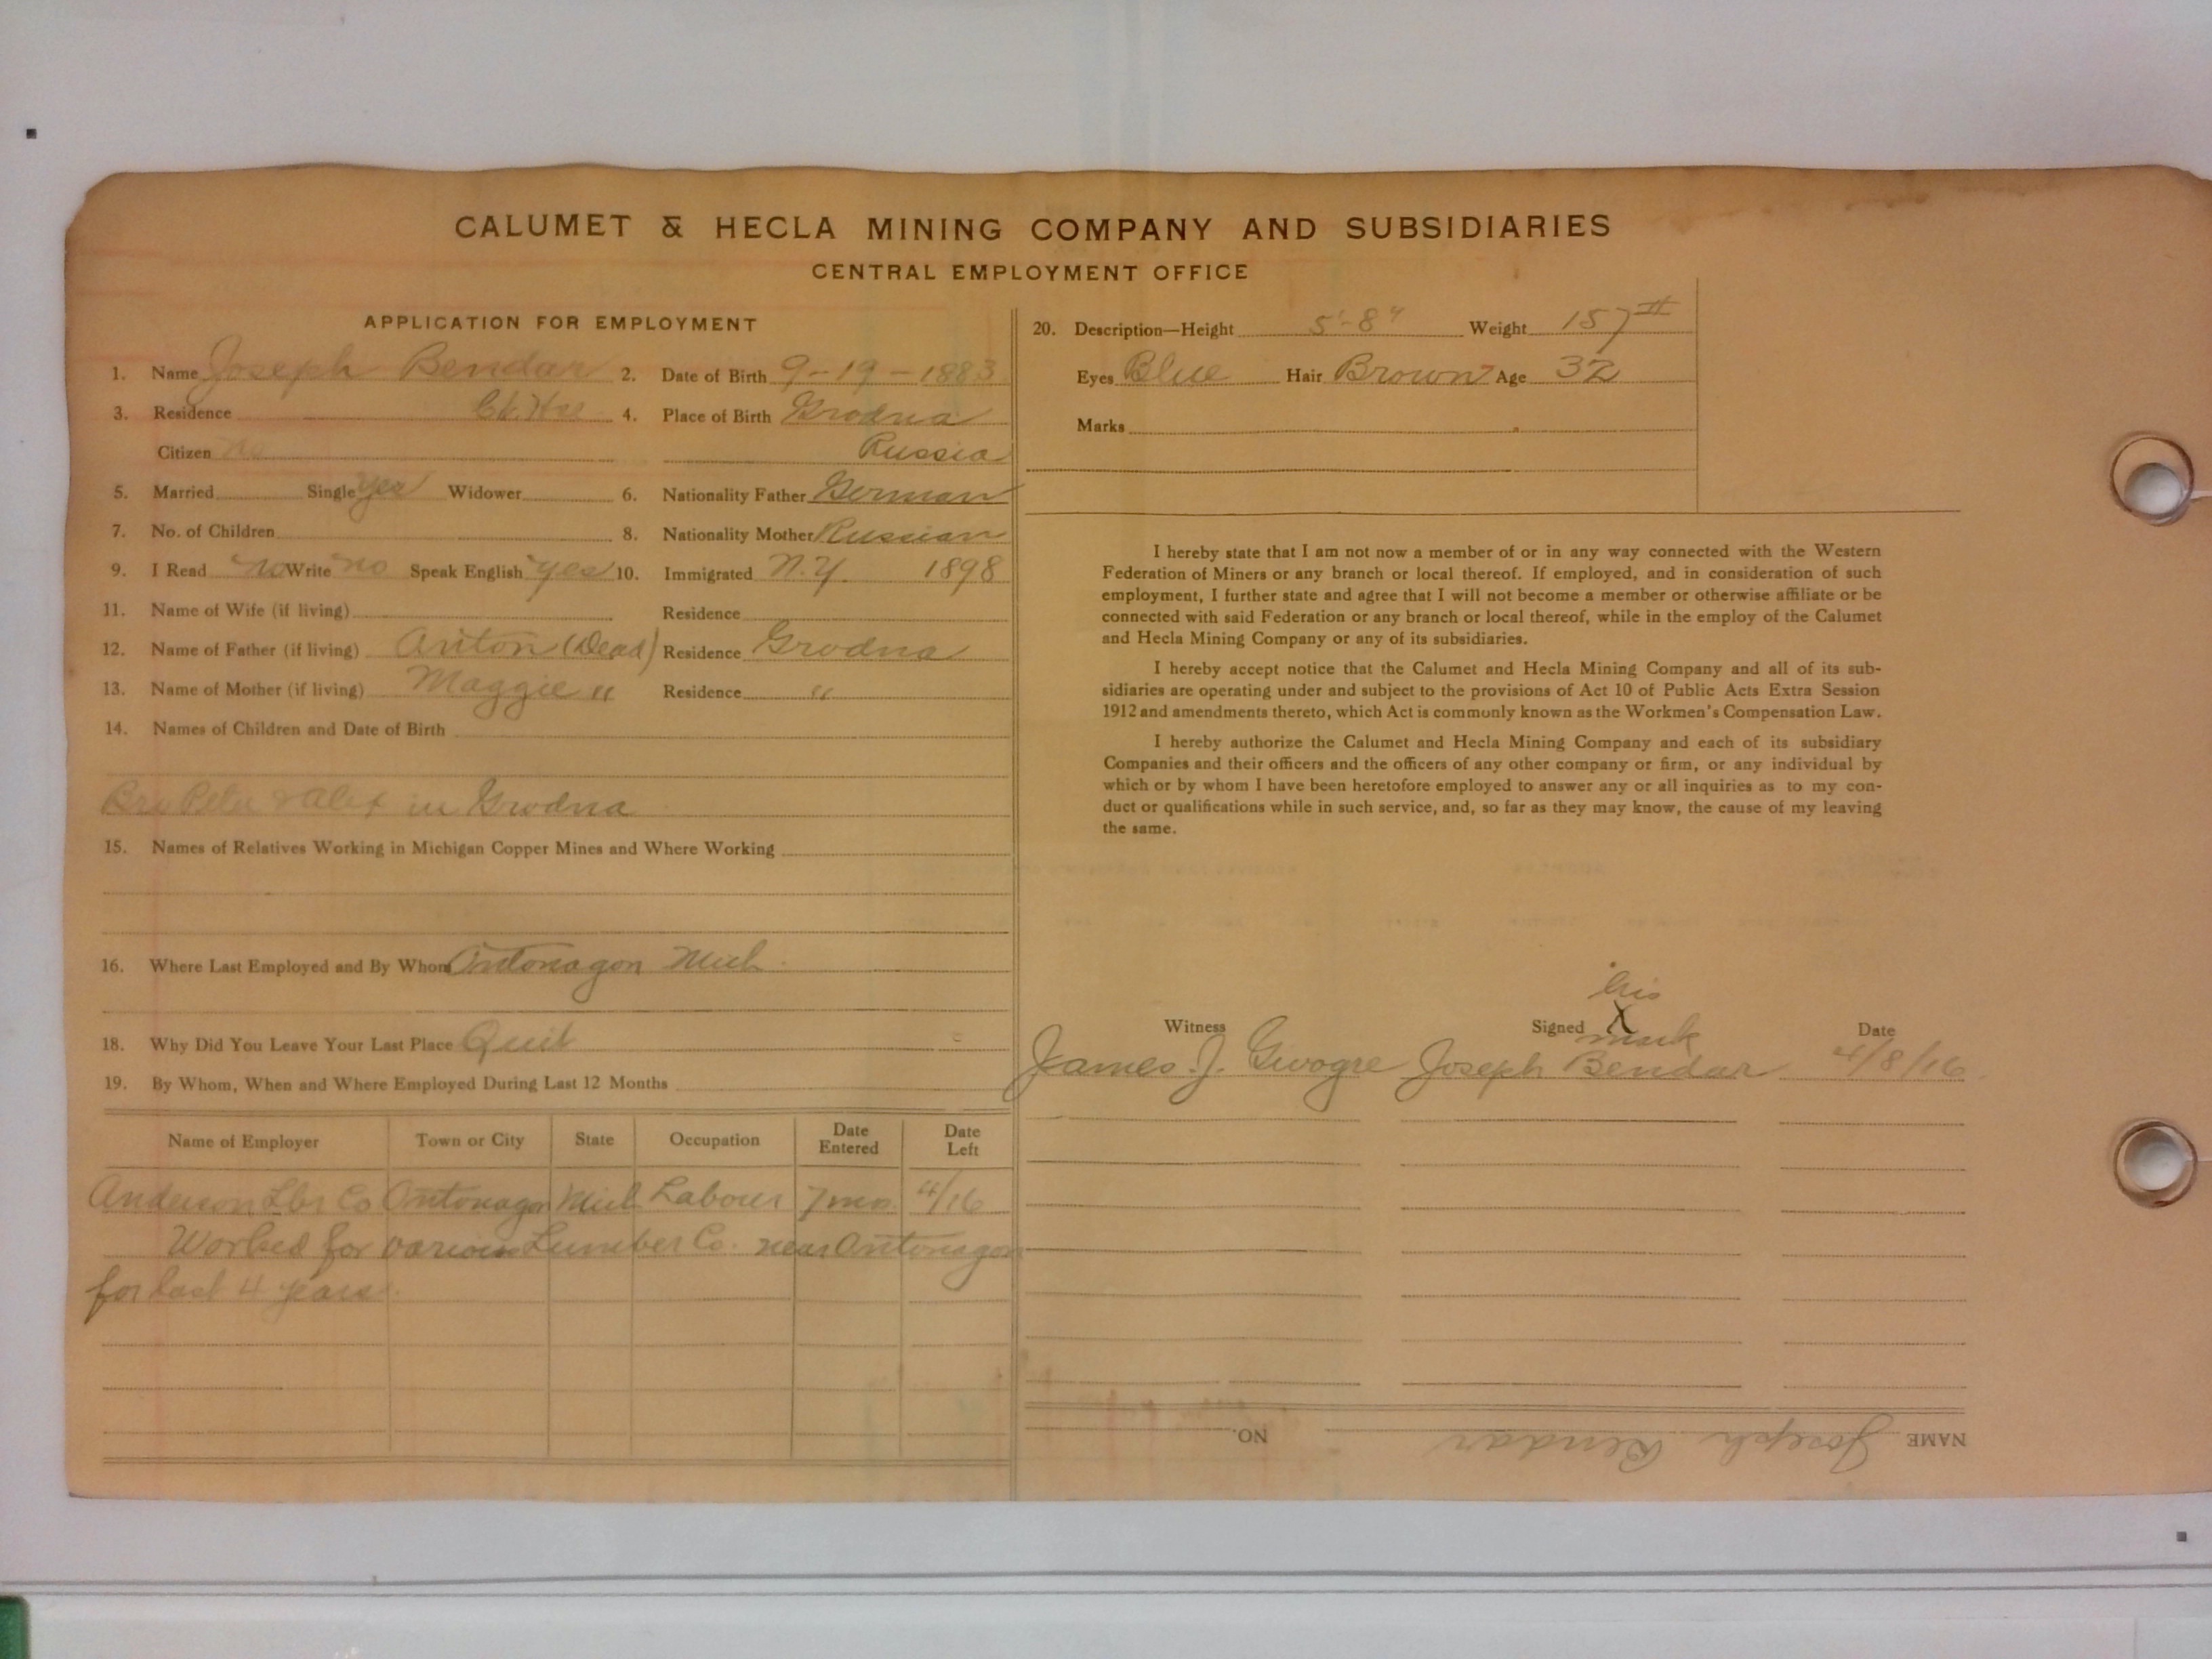 CALUMET & HECLA MINING COMPANY AND SUBSIDIARIES
CENTRAL EMPLOYMENT OFFICE
APPLICATION FOR EMPLOYMENT
1. Name Joseph Bendar 2. Date of Birth 9-19-1883
3. Residence 4. Place of Birth Grodna
Citizen no Russia
5. Married Single yes Widower 6. Nationality Father German
7. No. of Children 8. Nationality Mother Russian
9. I Read no Write no Speak English yes 10. Immigrated N.Y. 1898
11. Name of Wife (if living) Residence
12. Name of Father (if living) Anton (Dead) Residence Grodna
13. Name of Mother (if living) Maggie " Residence "
14. Names of Children and Date of Birth
Bro Peter & Alex in Grodna
15. Names of Relatives Working in Michigan Copper Mines and Where Working
16. Where Last Employed and By Whom Ontonagon Mich.
18. Why Did You Leave Your Last Place Quit
19. By Whom, When and Where Employed During Last 12 Months
Name of Employer Town or City State Occupation Date Entered Date Left
Anderson Lbr Co Ontonagon Mich Labour 7 mo. 4/16
Worked for various Lumber Co. near Ontonagon
for last 4 years.
20. Description—Height 5'-8" Weight 157#
Eyes Blue Hair Brown Age 32
Marks
I hereby state that I am not now a member of or in any way connected with the Western
Federation of Miners or any branch or local thereof. If employed, and in consideration of such
employment, I further state and agree that I will not become a member or otherwise affiliate or be
connected with said Federation or any branch or local thereof, while in the employ of the Calumet
and Hecla Mining Company or any of its subsidiaries.
I hereby accept notice that the Calumet and Hecla Mining Company and all of its sub-
sidiaries are operating under and subject to the provisions of Act 10 of Public Acts Extra Session
1912 and amendments thereto, which Act is commonly known as the Workmen's Compensation Law.
I hereby authorize the Calumet and Hecla Mining Company and each of its subsidiary
Companies and their officers and the officers of any other company or firm, or any individual by
which or by whom I have been heretofore employed to answer any or all inquiries as to my con-
duct or qualifications while in such service, and, so far as they may know, the cause of my leaving
the same.
his
Witness Signed X Date
mark
James J. Joseph Bendar 4/8/16
NAME Joseph Bendar NO.